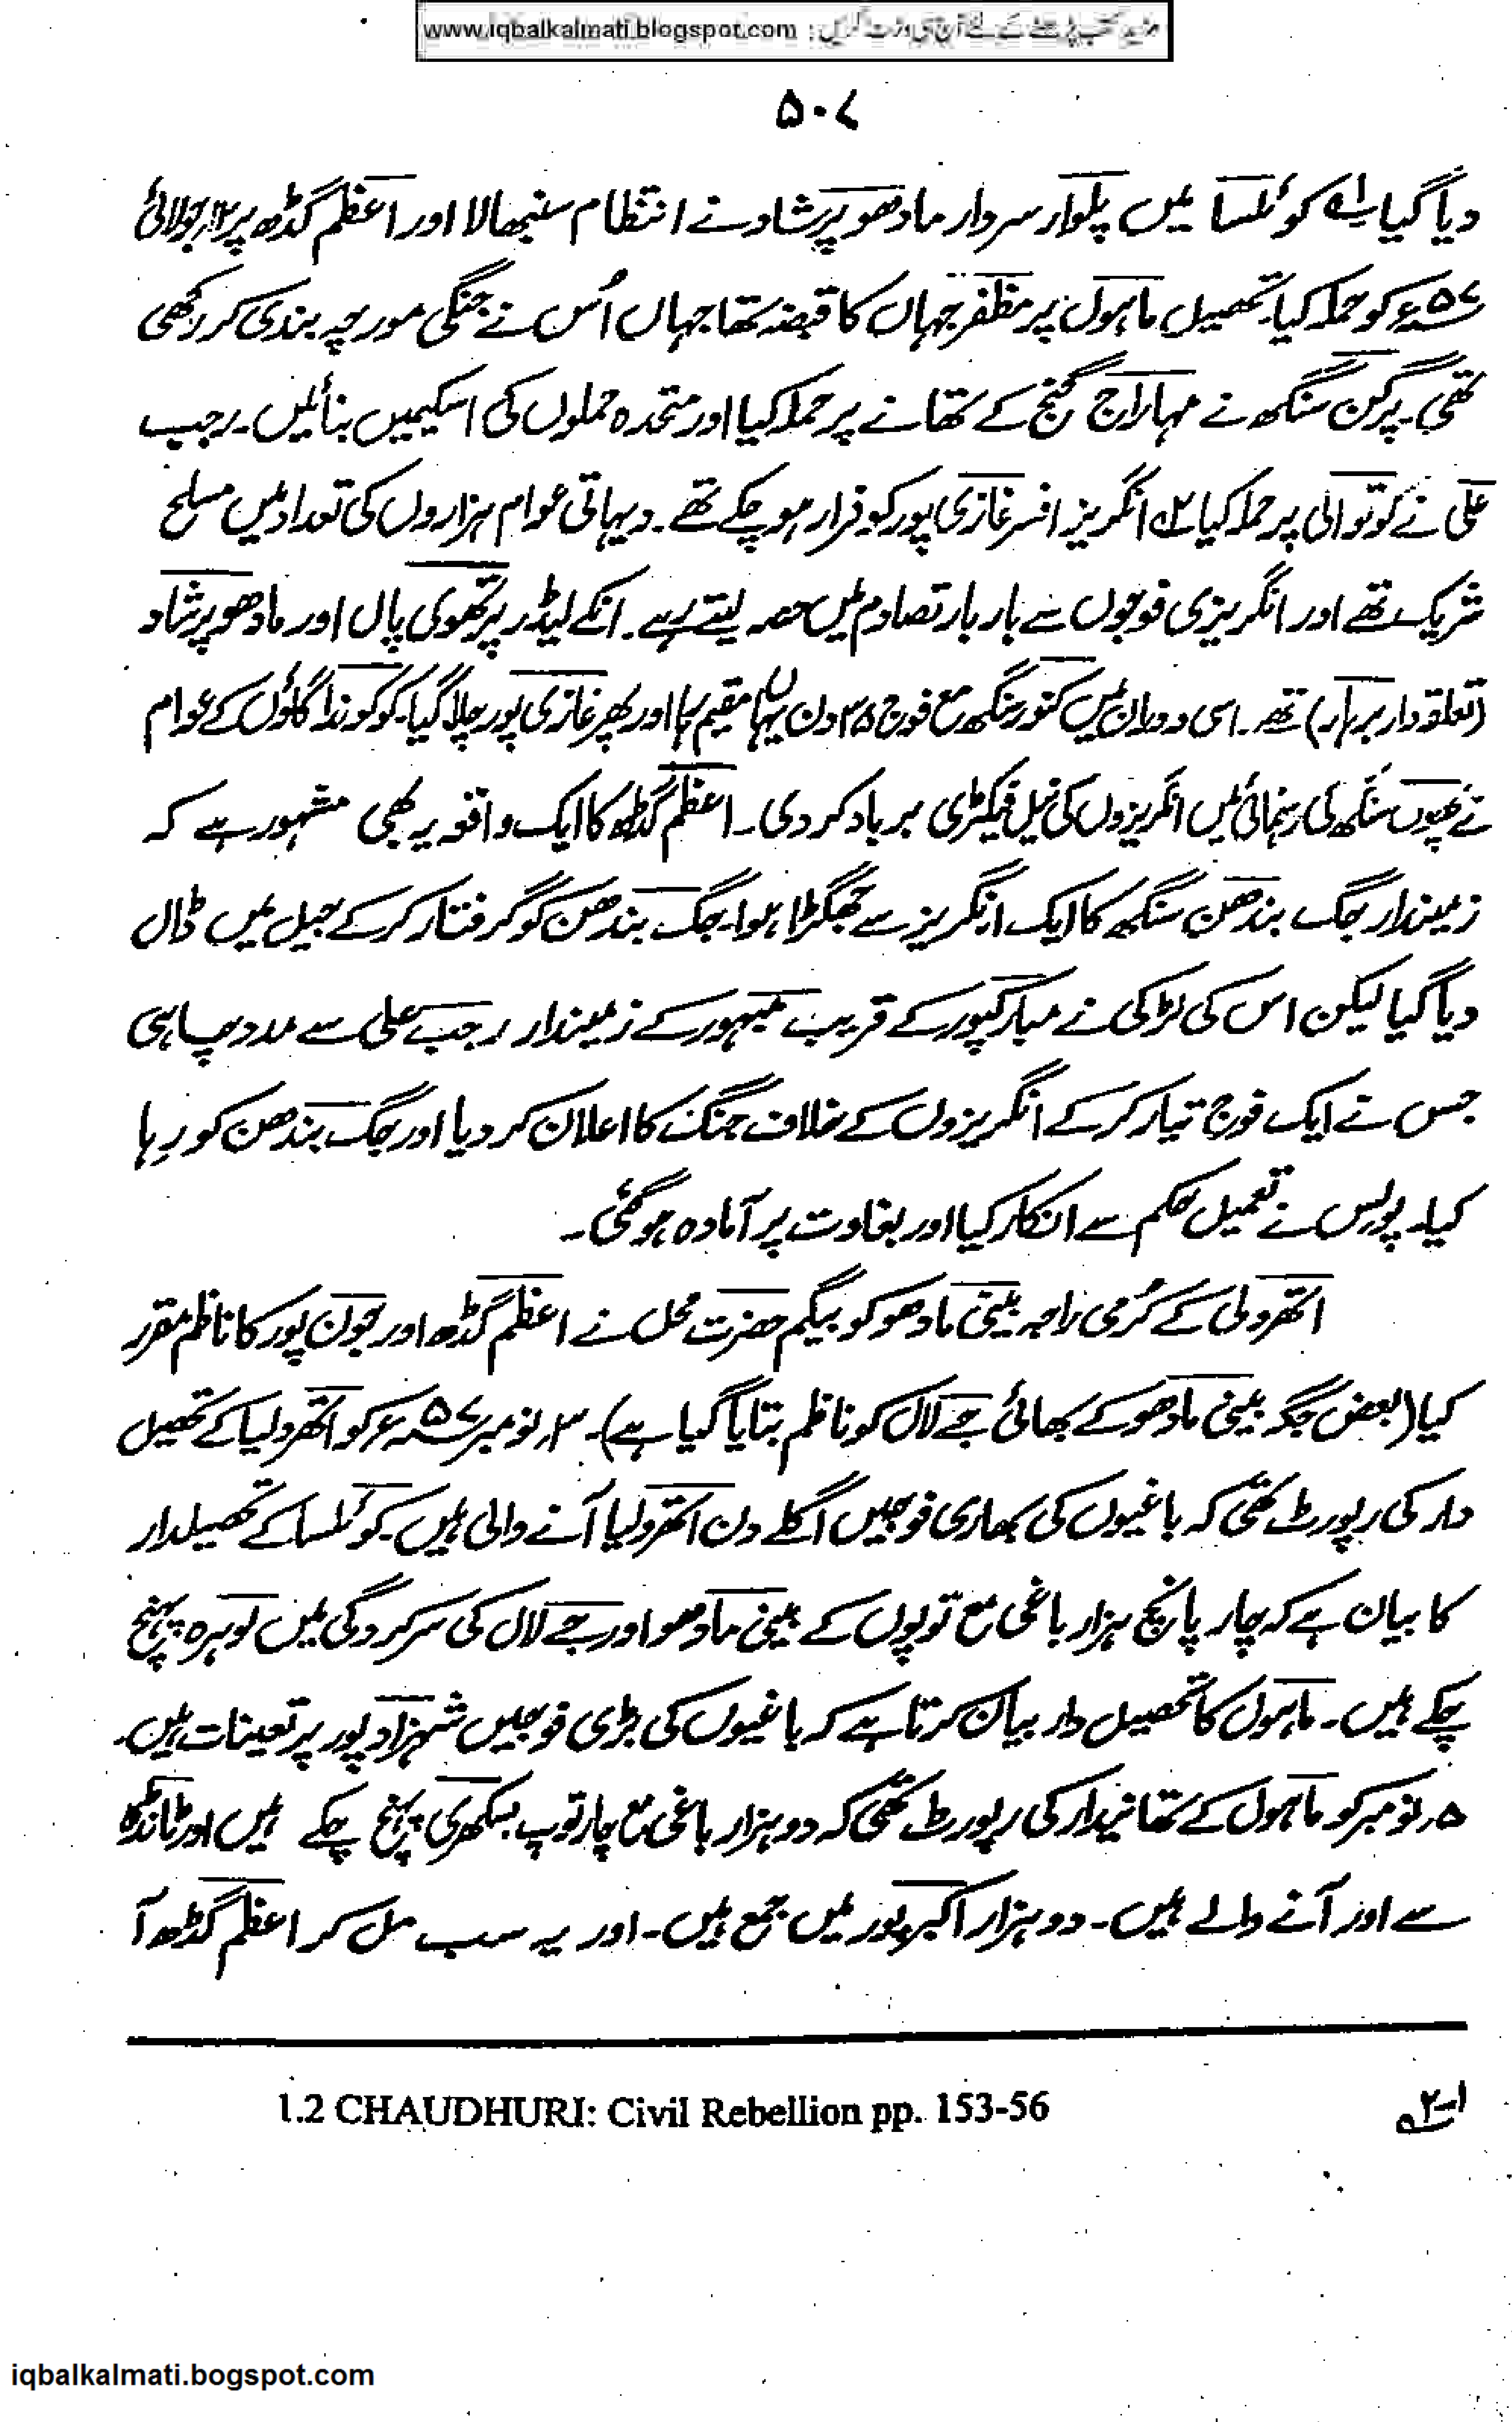 مزید کتب پڑھنے کے لئے آج ہی وزٹ کریں : www.iqbalkalmati.blogspot.com
۵۰۷
دیا گیا۔۱ کوئلسا میں پلوار سردار مادھو پرشاد نے انتظام سنبھالا اور اعظم گڈھ پر جولائی
۵۷ء کو حملہ کیا۔ تحصیل ماہول پر مظفر جہاں کا قبضہ تھا جہاں اُس نے جنگی مورچہ بندی کر رکھی
تھی۔ پرگن سنگھ نے مہاراج گنج کے تھانے پر حملہ کیا اور متحدہ حملوں کی اسکیمیں بنائیں۔ رجب
علی نے کوتوالی پر حملہ کیا۔۲ انگریز افسر غازی پور کو فرار ہو چکے تھے۔ دیہاتی عوام ہزاروں کی تعداد میں مسلح
شریک تھے اور انگریزی فوجوں سے بار بار تصادم میں حصہ لیتے رہے۔ انکے لیڈر پرتھوی پال اور مادھو پرشاد
(تعلقہ دار برہار) تھے۔ اسی دوران میں کنور سنگھ مع فوج ۲۵ دن یہاں مقیم رہا اور پھر غازی پور چلا گیا۔ کوکوندا گاؤں کے عوام
نے بھپوں سنگھ کی رہنمائی میں انگریزوں کی نیل فیکٹری برباد کر دی۔ اعظم گڈھ کا ایک واقعہ یہ بھی مشہور ہے کہ
زمیندار جگ بندھن سنگھ کا ایک انگریز سے جھگڑا ہوا۔ جگ بندھن کو گرفتار کر کے جیل میں ڈال
دیا گیا لیکن اس کی لڑکی نے مبارکپور کے قریب بمہور کے زمیندار رجب علی سے مدد چاہی
جس نے ایک فوج تیار کر کے انگریزوں کے خلاف جنگ کا اعلان کر دیا اور جگ بندھن کو رہا
کیا۔ پولس نے تعمیل حکم سے انکار کیا اور بغاوت پر آمادہ ہو گئی۔
اتھرولی کے کُرمی راجہ بینی مادھو کو بیگم حضرت محل نے اعظم گڈھ اور جون پور کا ناظم مقرر
کیا (بعض جگہ بینی مادھو کے بھائی جے لال کو ناظم بتایا گیا ہے)۔ ۳ر نومبر ۵۷ء کو اتھرولیا کے تحصیل
دار کی رپورٹ تھی کہ باغیوں کی بھاری فوجیں اگلے دن اتھرولیا آنے والی ہیں۔ کوئلسا کے تحصیلدار
کا بیان ہے کہ چار پانچ ہزار باغی مع توپوں کے بینی مادھو اور جے لال کی سرکردگی میں لوہرہ پہنچ
چکے ہیں۔ ماہول کا تحصیل دار بیان کرتا ہے کہ باغیوں کی بڑی فوجیں شہزاد پور پر تعینات ہیں۔
۵ر نومبر کو ماہول کے تھانیدار کی رپورٹ تھی کہ دو ہزار باغی مع چار توپ بسکھری پہنچ چکے ہیں اور ٹانڈہ
سے اور آنے والے ہیں۔ دو ہزار اکبر پور میں جمع ہیں۔ اور یہ سب مل کر اعظم گڈھ آ
۱-۲ 1.2 CHAUDHURI: Civil Rebellion pp. 153-56
iqbalkalmati.bogspot.com